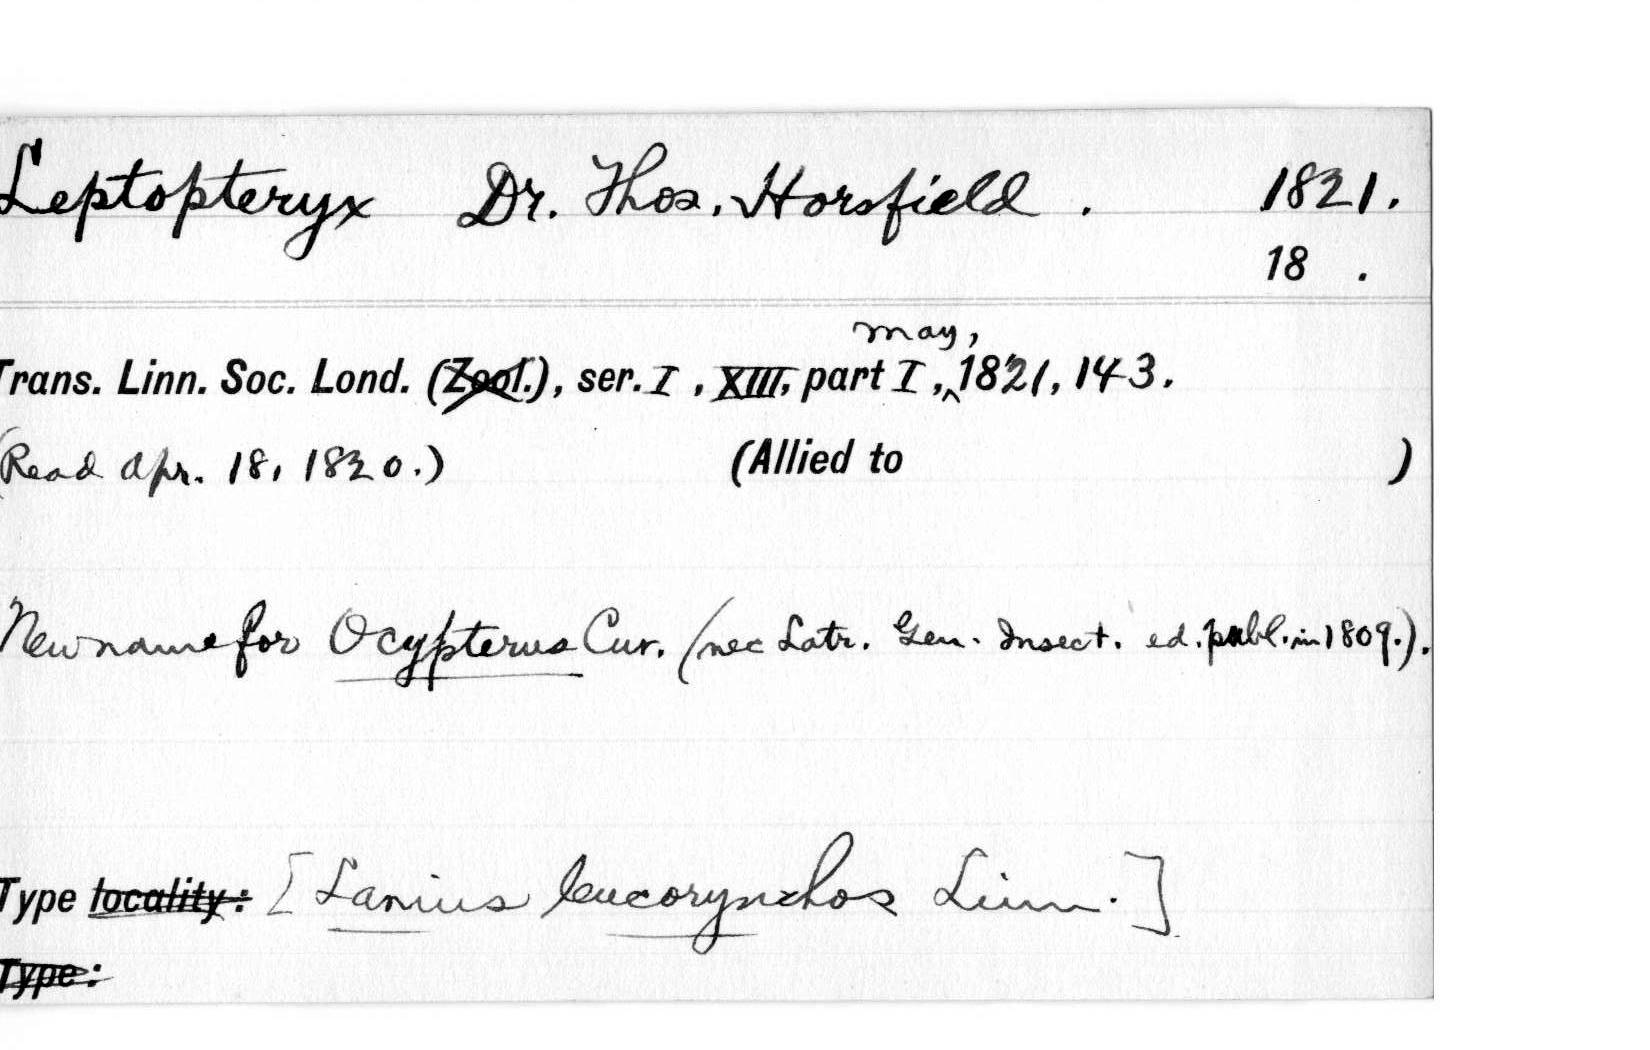 Leptopteryx Dr. Thos. Horsfield . 1821.
18 .
may,
Trans. Linn. Soc. Lond. (Zool.), ser. I , XIII, part I , ^ 1821, 143.
(Read Apr. 18, 1820.) (Allied to )
New name for Ocypterus Cuv. (nec Latr. Gen. Insect. ed. publ. in 1809.).
Type locality: [Lanius leucorynchos Linn.]
Type: